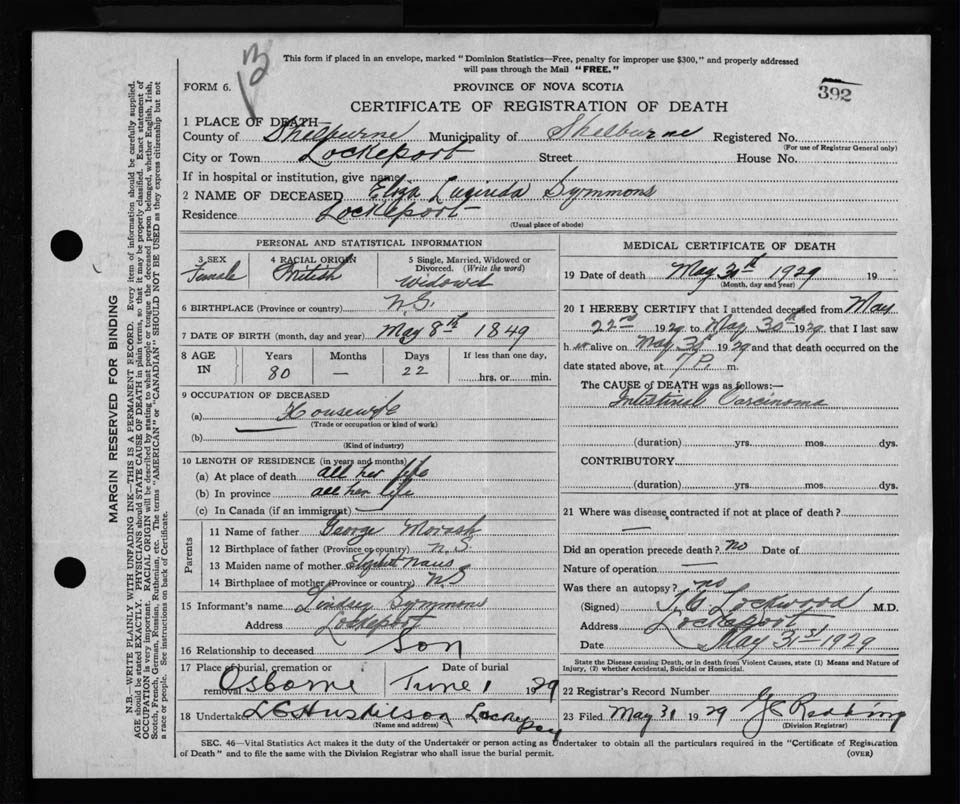 13
This form if placed in an envelope, marked "Dominion Statistics—Free, penalty for improper use $300," and properly addressed
will pass through the Mail "FREE."
FORM 6.
PROVINCE OF NOVA SCOTIA
392
CERTIFICATE OF REGISTRATION OF DEATH
1 PLACE OF DEATH
County of Shelburne Municipality of Shelburne Registered No.
(For use of Registrar General only)
City or Town Lockeport Street House No.
If in hospital or institution, give name
2 NAME OF DECEASED Eliza Lucinda Symmons
Residence Lockeport
(Usual place of abode)
PERSONAL AND STATISTICAL INFORMATION
3 SEX Female
4 RACIAL ORIGIN British
5 Single, Married, Widowed or
Divorced. (Write the word)
Widowed
6 BIRTHPLACE (Province or country) N.S.
7 DATE OF BIRTH (month, day and year) May 8th 1849
8 AGE IN
Years Months Days If less than one day,
80 — 22 hrs. or min.
9 OCCUPATION OF DECEASED
(a) Housewife
(Trade or occupation or kind of work)
(b)
(Kind of industry)
10 LENGTH OF RESIDENCE (in years and months)
(a) At place of death all her life
(b) In province all her life
(c) In Canada (if an immigrant)
Parents
11 Name of father George Morash
12 Birthplace of father (Province or country) N.S.
13 Maiden name of mother Elizabeth
14 Birthplace of mother (Province or country) N.S
15 Informant's name Lindsey Symmons
Address Lockeport
16 Relationship to deceased Son
17 Place of burial, cremation or
removal Osborne
Date of burial
June 1 1929
18 Undertaker L C Huskilson Lockeport
(Name and address)
MEDICAL CERTIFICATE OF DEATH
19 Date of death May 30th 1929 19
(Month, day and year)
20 I HEREBY CERTIFY that I attended deceased from May
22nd 1929 to May 30th 1929, that I last saw
h er alive on May 30th 1929 and that death occurred on the
date stated above, at 7 P. m.
The CAUSE OF DEATH was as follows:—
Intestinal Carcinoma
(duration) yrs. mos. dys.
CONTRIBUTORY
(duration) yrs. mos. dys.
21 Where was disease contracted if not at place of death?
—
Did an operation precede death? no Date of
Nature of operation —
Was there an autopsy? no
(Signed) Lockwood M.D.
Address Lockeport
Date May 31st 1929
State the Disease causing Death, or in death from Violent Causes, state (1) Means and Nature of
Injury, (2) whether Accidental, Suicidal or Homicidal.
22 Registrar's Record Number
23 Filed May 31 1929
(Division Registrar)
SEC. 46—Vital Statistics Act makes it the duty of the Undertaker or person acting as Undertaker to obtain all the particulars required in the "Certificate of Registration
of Death" and to file the same with the Division Registrar who shall issue the burial permit. (OVER)
MARGIN RESERVED FOR BINDING
N.B.—WRITE PLAINLY WITH UNFADING INK—THIS IS A PERMANENT RECORD. Every item of information should be carefully supplied.
AGE should be stated EXACTLY. PHYSICIANS should STATE CAUSE OF DEATH in plain terms, so that it may be properly classified. Exact statement of
OCCUPATION is very important. RACIAL ORIGIN will be described by stating to what people or tongue the deceased person belonged, whether English, Irish,
Scotch, French, German, Russian, Ruthenian, etc. The terms "AMERICAN" or "CANADIAN" SHOULD NOT BE USED as they express citizenship but not
a race or people. See instructions on back of Certificate.